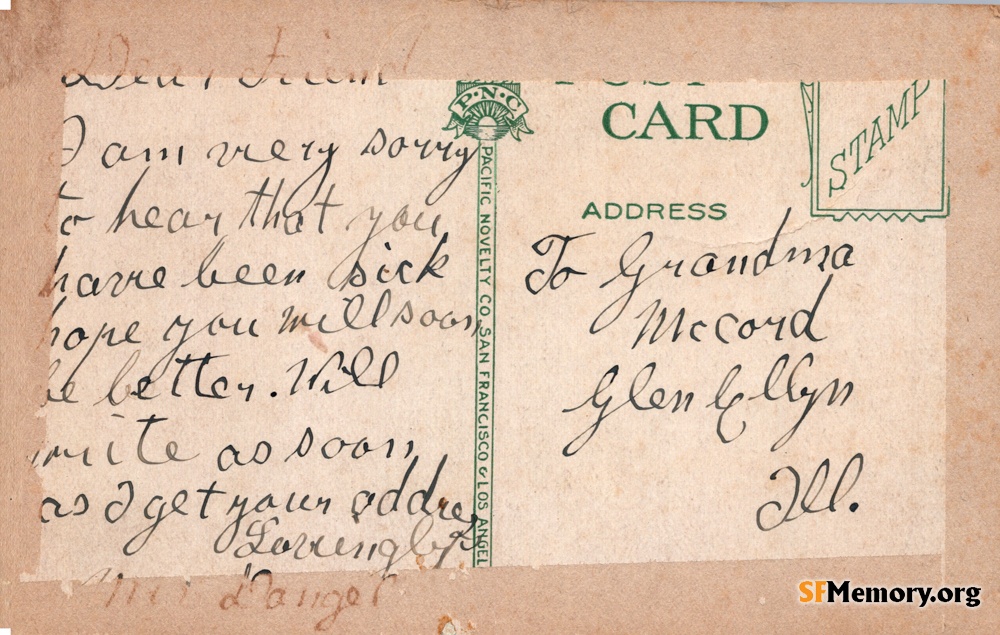 Dear Friend
I am very sorry
to hear that you
have been sick
hope you will soon
be better. Will
write as soon
as I get your address
Lovingly
P·N·C
PACIFIC NOVELTY CO. SAN FRANCISCO & LOS ANGEL
POST
CARD
STAMP
ADDRESS
To Grandma
McCord
Glen Ellyn
Ill.
SFMemory.org